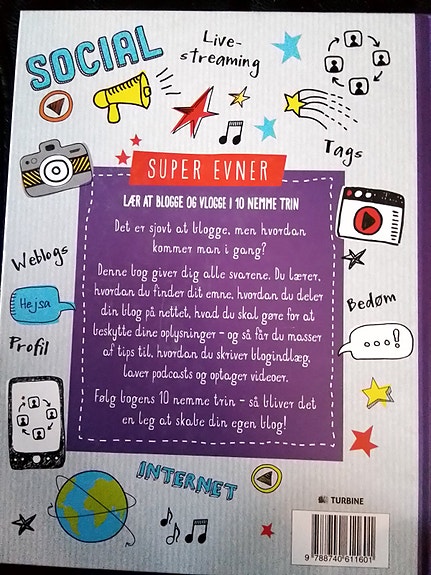 SOCIAL
Live-
streaming
Tags
SUPER EVNER
LÆR AT BLOGGE OG VLOGGE I 10 NEMME TRIN
Det er sjovt at blogge, men hvordan
kommer man i gang?
Denne bog giver dig alle svarene. Du lærer,
hvordan du finder dit emne, hvordan du deler
din blog på nettet, hvad du skal gøre for at
beskytte dine oplysninger – og så får du masser
af tips til, hvordan du skriver blogindlæg,
laver podcasts og optager videoer.
Følg bogens 10 nemme trin – så bliver det
en leg at skabe din egen blog!
Weblogs
Hejsa
Profil
Bedøm
...!
INTERNET
TURBINE
9 788740 611601